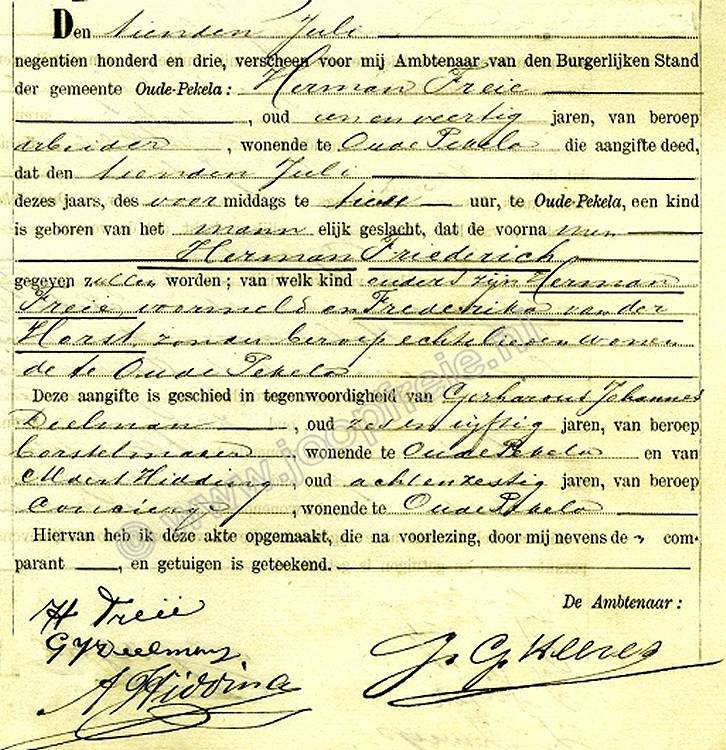 Den tienden Juli
negentien honderd en drie, verscheen voor mij Ambtenaar van den Burgerlijken Stand
der gemeente Oude-Pekela: Herman Freie
, oud een en veertig jaren, van beroep
arbeider, wonende te Oude Pekela die aangifte deed,
dat den tienden Juli
dezes jaars, des voor middags te uur, te Oude-Pekela, een kind
is geboren van het mann elijk geslacht, dat de voorna men
Herman Friederich
gegeven zullen worden; van welk kind ouders zijn Herman
Freie, voormeld en Frederika van der
Horst, zonder beroep echtelieden wonen
de te Oude Pekela
Deze aangifte is geschied in tegenwoordigheid van Gerhardus Johannes
Deelman, oud zes en vijftig jaren, van beroep
borstelmaker, wonende te Oude Pekela en van
Hidding, oud achtenzestig jaren, van beroep
Concierge, wonende te Oude Pekela
Hiervan heb ik deze akte opgemaakt, die na voorlezing, door mij nevens de com-
parant, en getuigen is geteekend.
De Ambtenaar:
H Freie
GJ Deelman
A Hidding
© www.joopfreie.nl